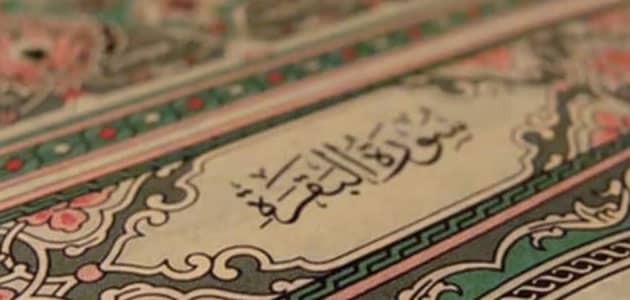 سورة البقرة